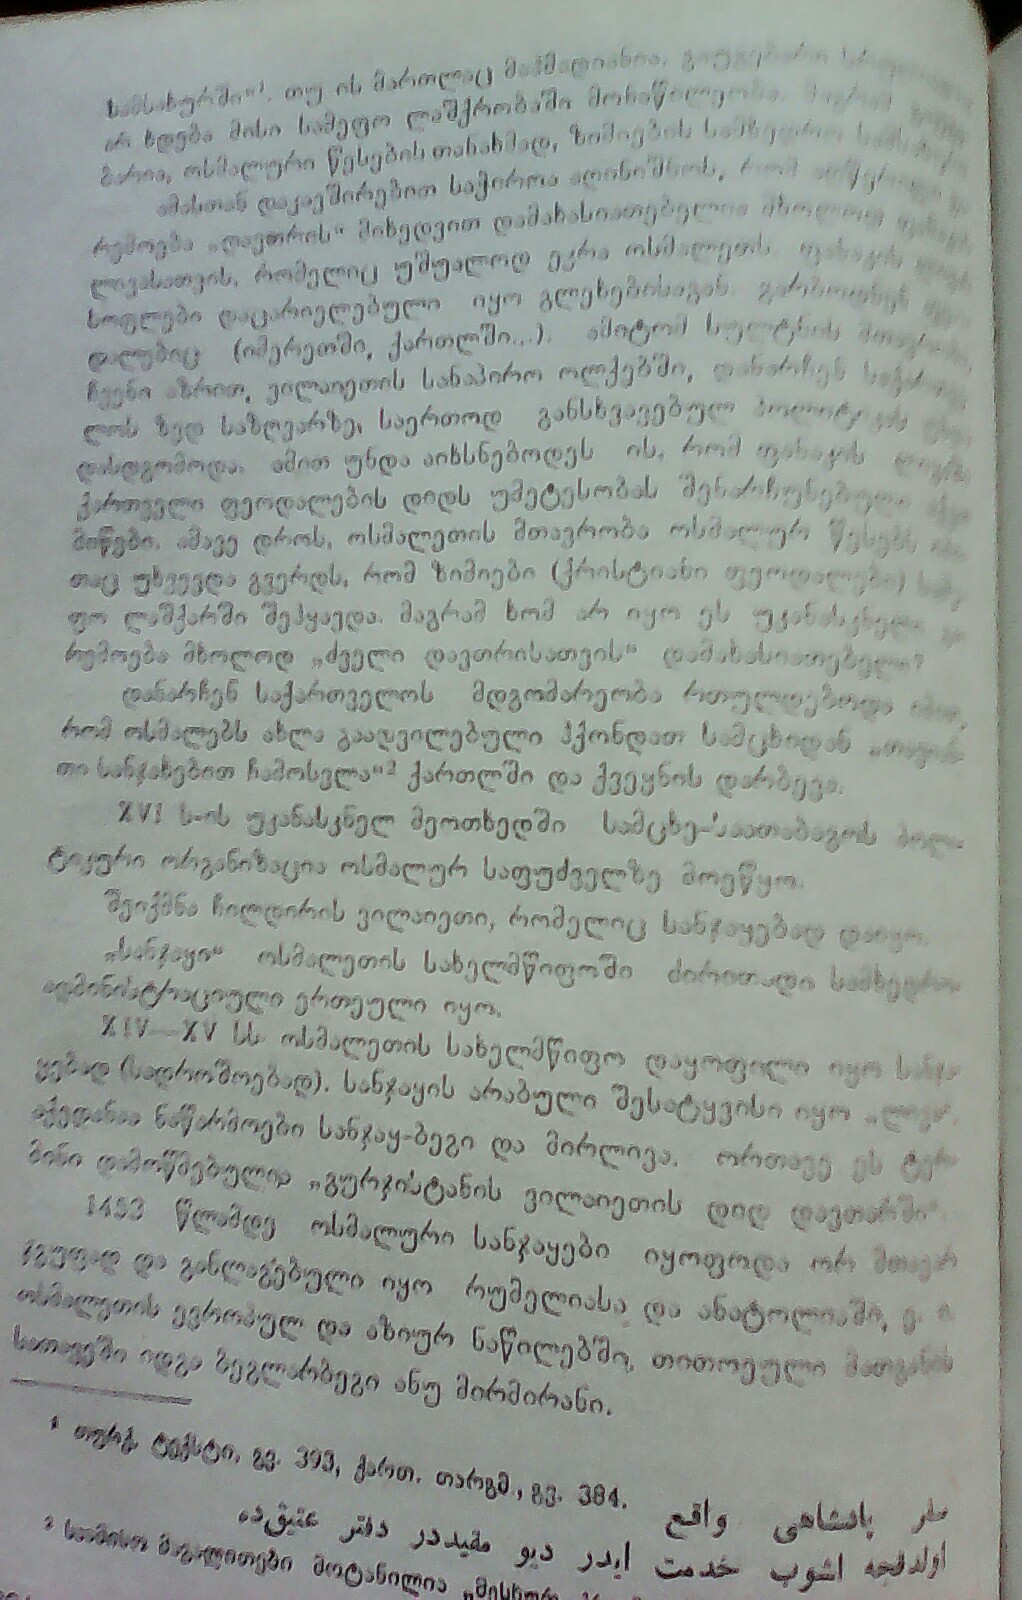 სამსახურში“¹. თუ ის მართლაც მაჰმადიანია. გაუგებარი
არ ხდება მისი სამეფო ლაშქრობაში მონაწილეობა. მაგრამ
ბარია, ოსმალური წესების თანახმად, ზიმიების სამხედრო
ამასთან დაკავშირებით საჭიროა აღინიშნოს, რომ აღწერილი
რემოება „დავთრის“ მიხედვით დამახასიათებელია მხოლოდ
ლივასათვის, რომელიც უშუალოდ ეკრა ოსმალეთს.
სოფლები დაცარიელებული იყო გლეხებისაგან. გარბოდნენ
დალებიც (იმერეთში, ქართლში...). ამიტომ სულტნის მთავრობა,
ჩვენი აზრით, ვილაიეთის სანაპირო ოლქებში, დანარჩენ საქართვე-
ლოს ზედ საზღვარზე, საერთოდ განსხვავებულ პოლიტიკას
დასდგომოდა. ამით უნდა აიხსნებოდეს ის, რომ ფანაკის ლივაში
ქართველი ფეოდალების დიდს უმეტესობას შენარჩუნებული
მიწები. ამავე დროს, ოსმალეთის მთავრობა ოსმალურ წესებს
თაც უხვევდა გვერდს, რომ ზიმიები (ქრისტიანი ფეოდალები) სამე-
ფო ლაშქარში შეჰყავდა. მაგრამ ხომ არ იყო ეს უკანასკნელი
რემოება მხოლოდ „ძველი დავთრისათვის“ დამახასიათებელი?
დანარჩენ საქართველოს მდგომარეობა რთულდებოდა იმით,
რომ ოსმალებს ახლა გაადვილებული ჰქონდათ სამცხიდან „თავიან-
თი სანჯახებით ჩამოსვლა“² ქართლში და ქვეყნის დარბევა.
XVI ს-ის უკანასკნელ მეოთხედში სამცხე-საათაბაგოს პოლი-
ტიკური ორგანიზაცია ოსმალურ საფუძველზე მოეწყო.
შეიქმნა ჩილდირის ვილაიეთი, რომელიც სანჯაყებად დაიყო.
„სანჯაყი“ ოსმალეთის სახელმწიფოში ძირითადი სამხედრო-
ადმინისტრაციული ერთეული იყო.
XIV—XV სს. ოსმალეთის სახელმწიფო დაყოფილი იყო სანჯა-
ყებად (სადროშოებად). სანჯაყის არაბული შესატყვისი იყო „ლივა“.
აქედანაა ნაწარმოები სანჯაყ-ბეგი და მირლივა. ორთავე ეს ტერ-
მინი დამოწმებულია „გურჯისტანის ვილაიეთის დიდ დავთარში“.
1453 წლამდე ოსმალური სანჯაყები იყოფოდა ორ მთავარ
ჯგუფად და განლაგებული იყო რუმელიასა და ანატოლიაში, ე. ი.
ოსმალეთის ევროპულ და აზიურ ნაწილებში, თითოეული მათგანის
სათავეში იდგა ბეგლარბეგი ანუ მირმირანი.
¹ თურქ. ტექსტი, გვ. 393, ქართ. თარგმ., გვ. 384.
سفر پادشاهی واقع
اولدقجه اشوب خدمت ايدر ديو مقيددر دفتر عتيقده
² საამისო მაგალითები მოტანილია